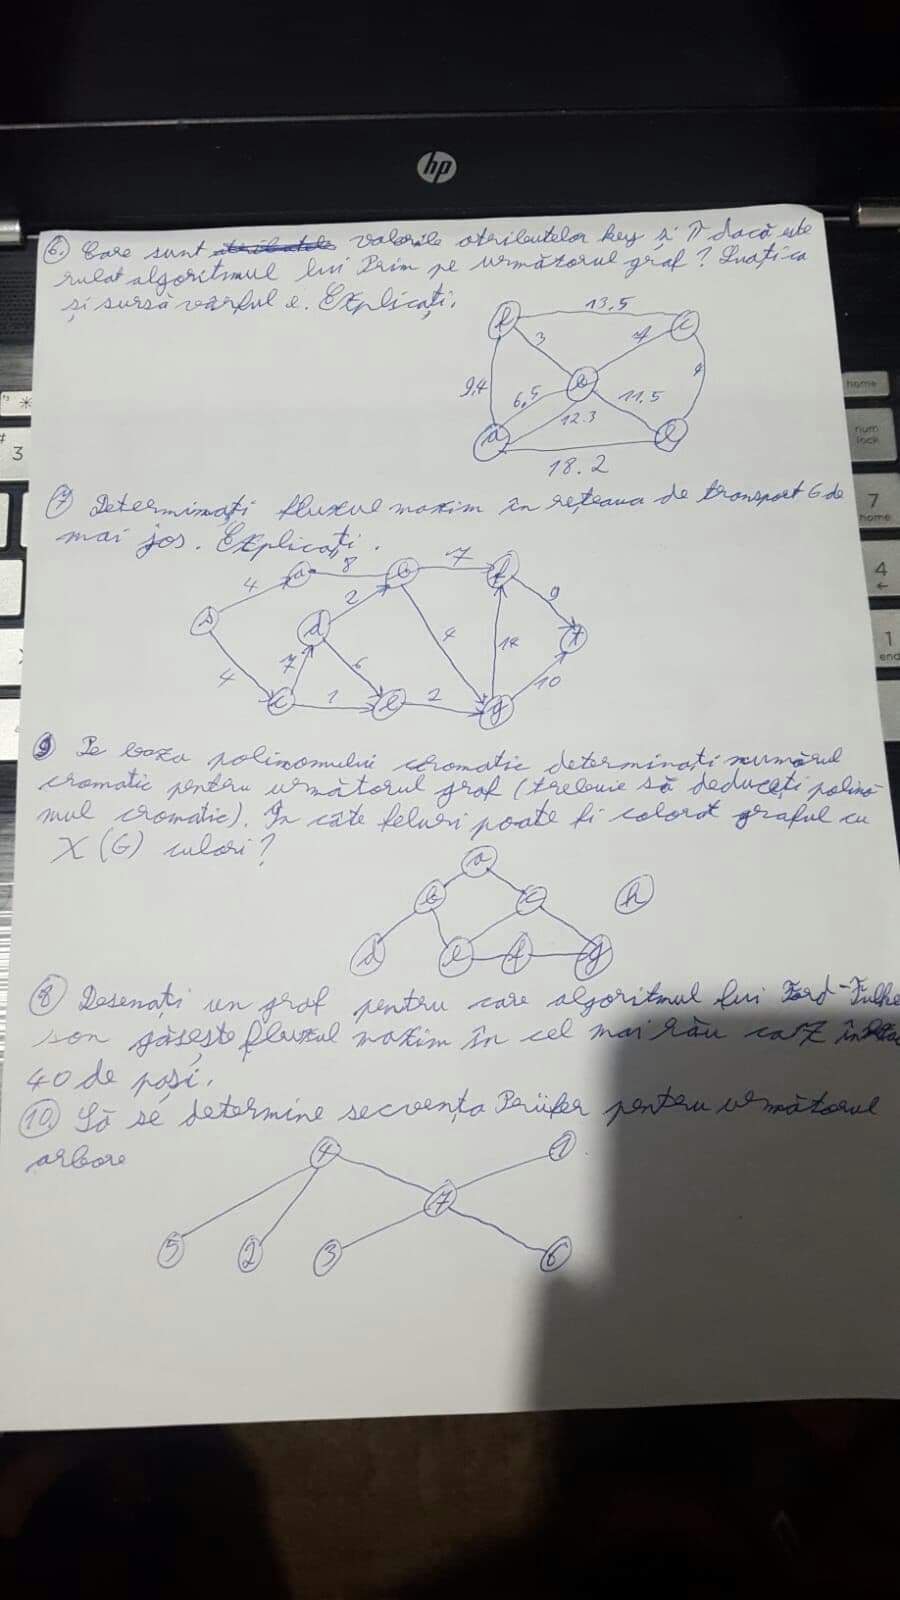 hp
6. Care sunt valorile atributelor key și π dacă este
rulat algoritmul lui Prim pe următorul graf? Luați ca
și sursă vârful e. Explicați.
13,5
c
3
7
9,4
6,5
11.5
12.3
a
18.2
7 Determinați fluxul maxim în rețeaua de transport G de
mai jos. Explicați.
4 a 8 b 7 f
2 9
s d t
4 7 6 4 14
10
c 1 e 2 g
9 Pe baza polinomului cromatic determinați numărul
cromatic pentru următorul graf (trebuie să deduceți polino-
mul cromatic). În câte feluri poate fi colorat graful cu
X (G) culori?
a
b c h
d e f g
8 Desenați un graf pentru care algoritmul lui Ford-Fulker
son găsește fluxul maxim în cel mai rău caz în
40 de pași.
10. Să se determine secvența Prüfer pentru următorul
arbore
4 1
7
5 2 3 6
home
num
lock
3
7
home
4
1
end